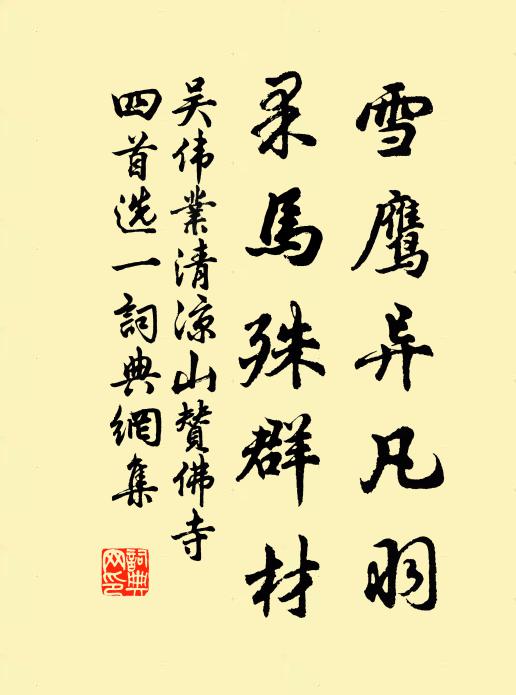 雪鹰异凡羽
果马殊群材
吴伟業清凉山贊佛寺
四首选一詞典網集
詞典網印